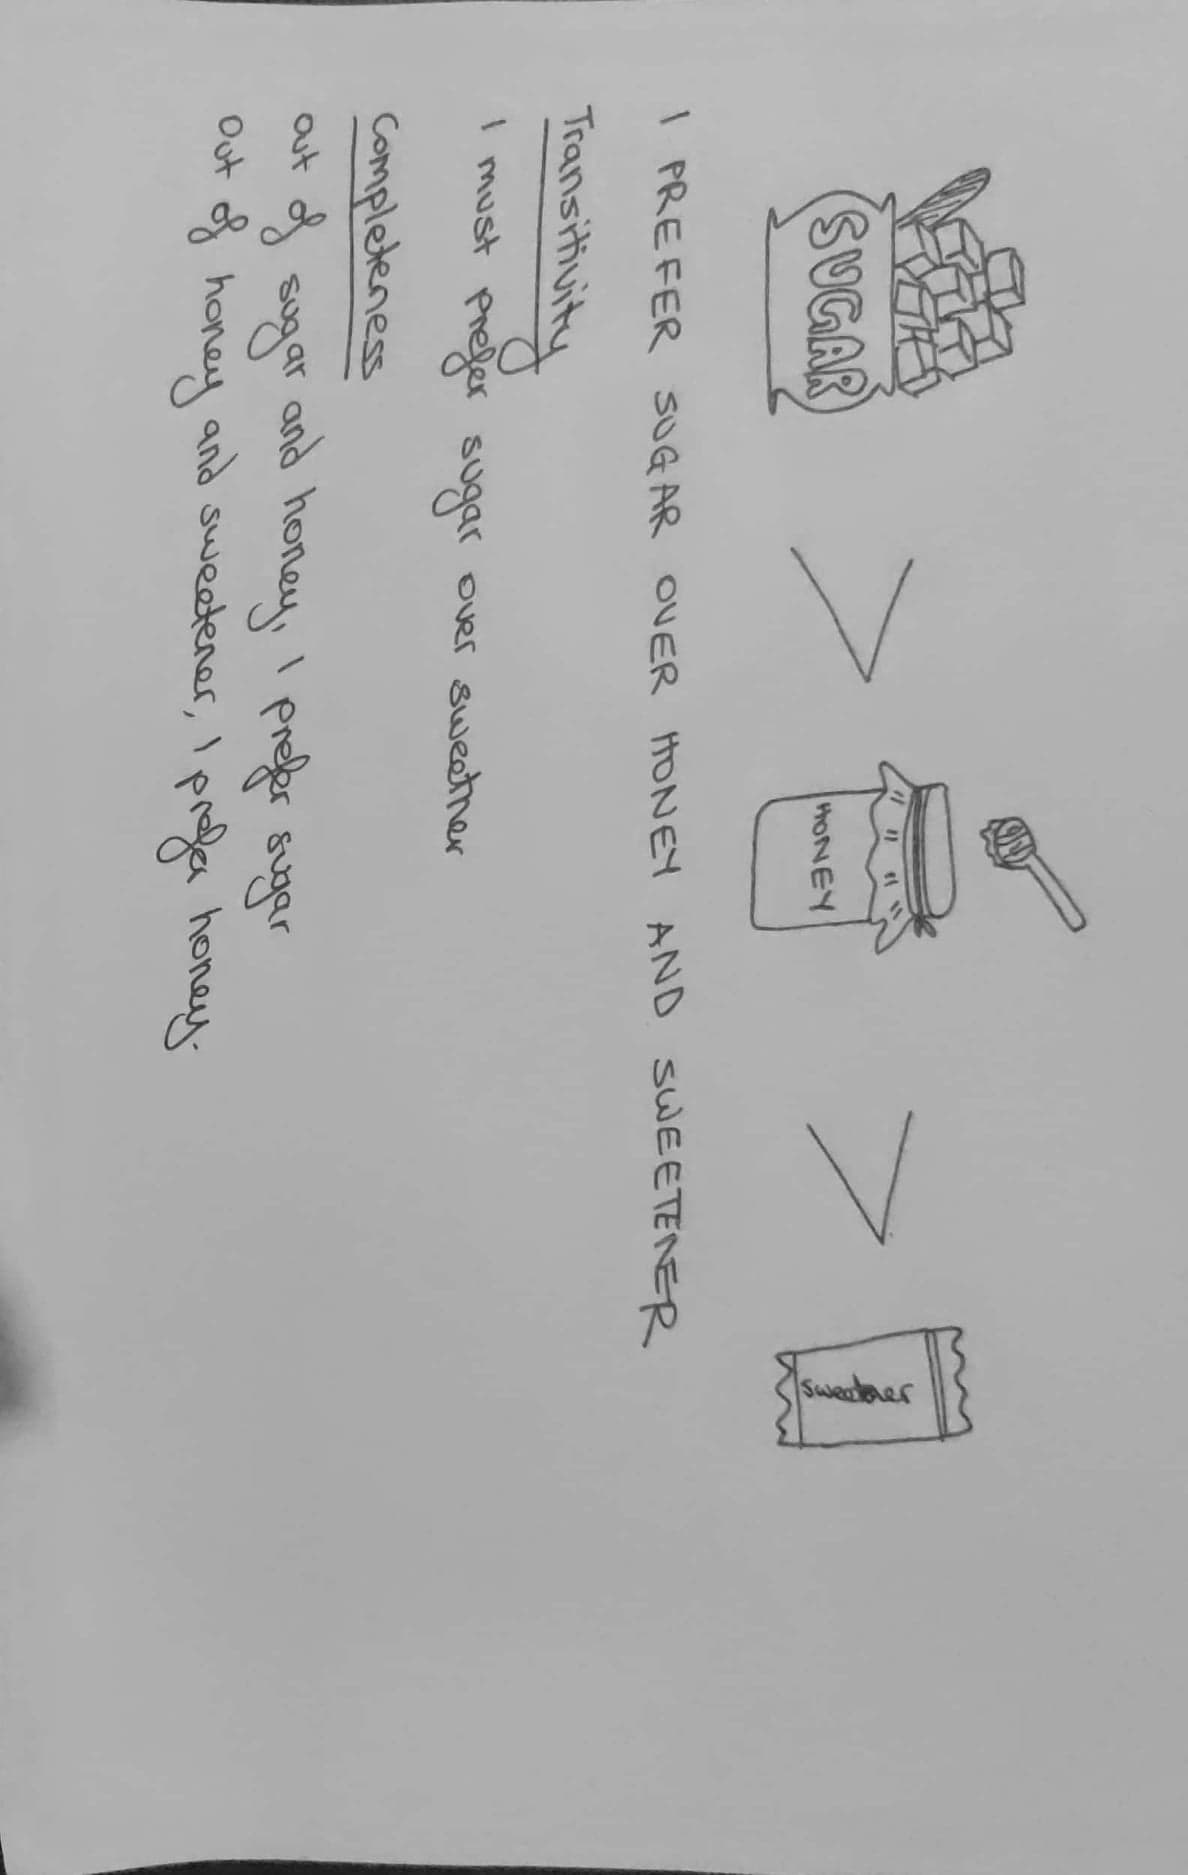 SUGAR
HONEY
sweetner
I PREFER SUGAR OVER HONEY AND SWEETENER
Transitivity
I must prefer sugar over sweetner
Completeness
out of sugar and honey, I prefer sugar
out of honey and sweetener, I prefer honey.